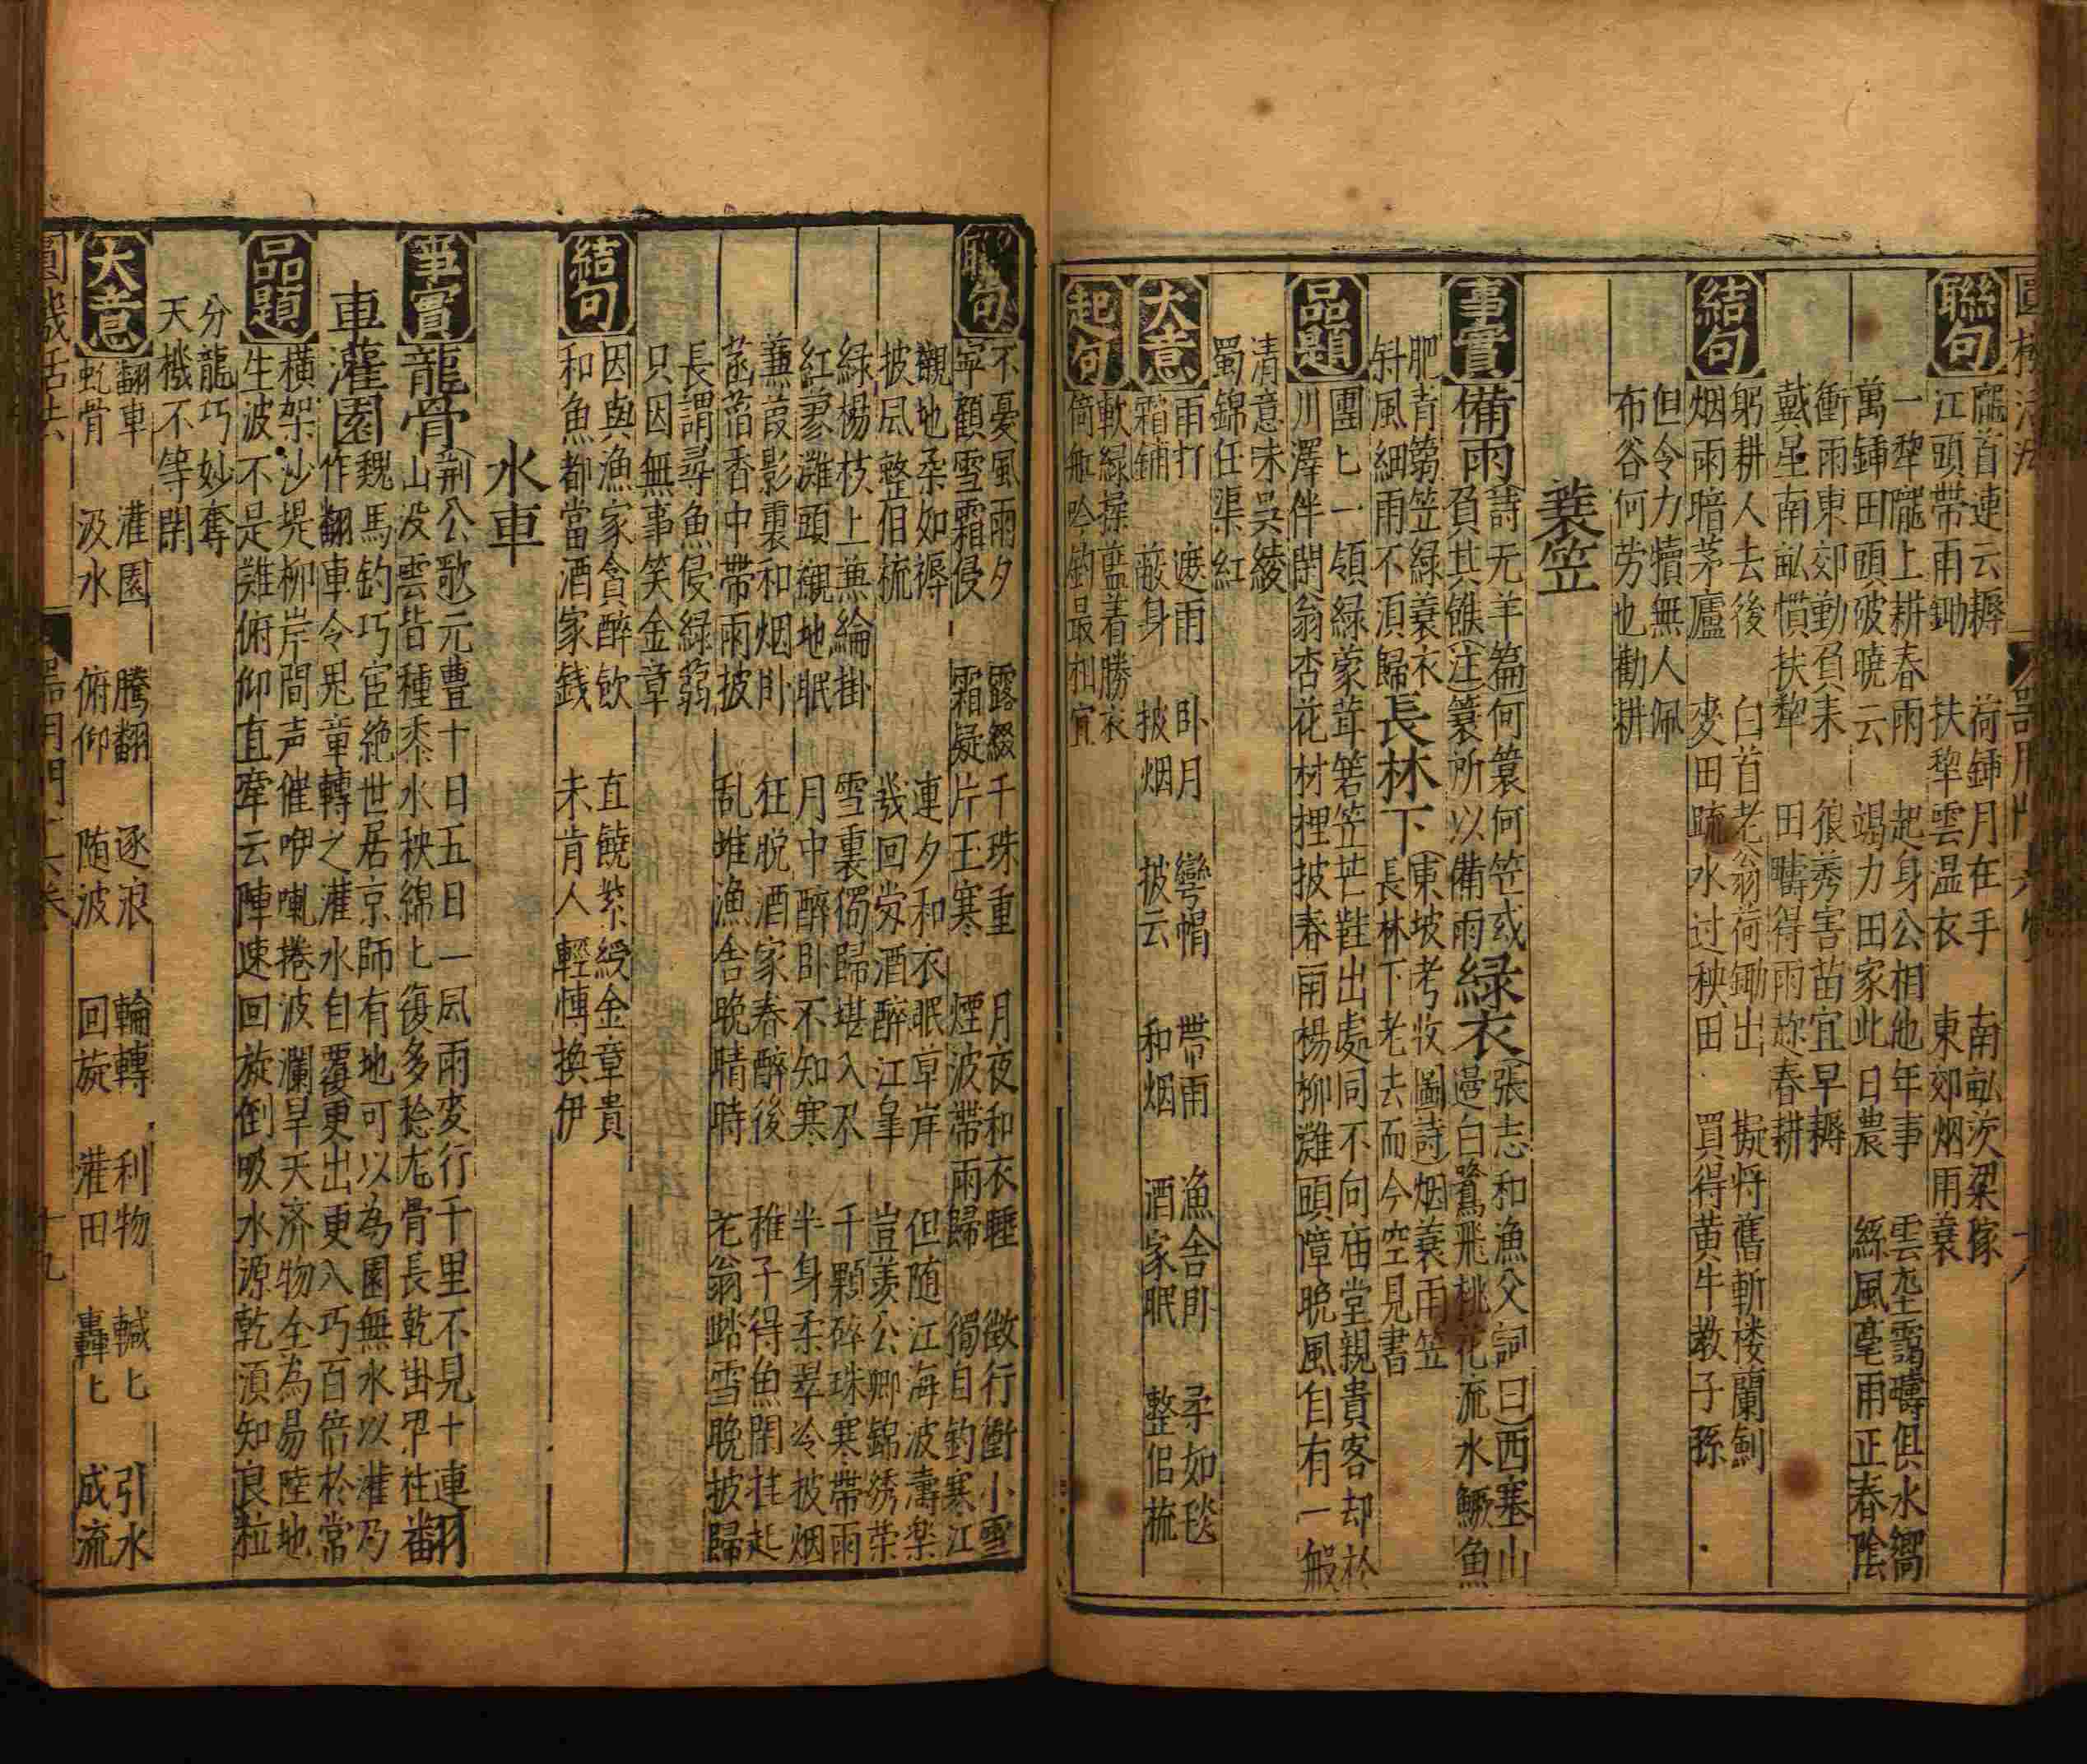 聯句
隴首連云耨 荷鋤月在手 南畝茨粱稼
江頭帶雨鋤 扶犁雲温衣 東郊烟雨蓑
一犂隴上耕春雨 起身公相他年事 雲堂
萬鍤田頭破曉云 竭力田家此日農 絲風毫雨正春陰
衝雨東郊勤負耒 稂莠害苗宜早耨
戴星南畝慣扶犂 田疇得雨趂春耕
結句
躬耕人去後 白首老翁荷鋤出 擬將舊斬楼蘭劍
烟雨暗茅廬 麥田疏水过秧田 買得黄牛教子孫
但令力犢無人佩
布谷何劳也勸耕
蓑笠
事實
備雨(詩无羊篇)何簑何笠或負其餱(注)簑所以備雨
綠衣(張志和漁父詞曰)西塞山邊白鷺飛桃花流水鱖魚肥青篛笠綠蓑衣斜風細雨不湏歸
長林下(東坡考牧圖詩)烟蓑雨笠長林下老去而今空見書
品題
團匕一領綠蒙茸箬笠芒鞋出處同不向庙堂親貴客却於川澤伴閑翁杏花村裡披春雨楊柳灘頭障晚風自有一般清意味吳綾蜀錦任渠紅
大意
雨打 遮雨 卧月 彎帽 帶雨 漁舍卧 柔如毯
霜鋪 蔽身 披烟 披云 和烟 酒家眠 整侶梳
起句
軟綠操藍着勝衣
倚船吟釣最相宜
聯句
不憂風雨夕 露綴千珠重 月夜和衣睡 微行衝小雪
寧顧雪霜侵 霜凝片玉寒 煙波帶雨歸 獨自釣寒江
襯地朶如褥 連夕和衣眠草岸 但随江海波濤楽
披凨整侶梳 幾回劵酒醉江皐 豈羡公卿錦綉荣
綠楊枝上無綸掛 雪裏獨歸堪入𦘕 千顆碎珠寒帶雨
紅蓼灘頭襯地眠 月中醉卧不知寒 半身柔翠冷披烟
蒹葭影裏和烟卧 狂脱酒家春醉後 稚子得魚閑挂起
菡萏香中帶雨披 乱堆漁舍晚晴時 老翁踏雪晚披歸
長謂尋魚侵綠蒻
只因無事笑金章
結句
因與漁家貪醉飲 直饒紫綬金章貴
和魚都當酒家錢 未肯人輕慱換伊
水車
事實
龍骨(荆公歌)元豊十日五日一凨雨麥行千里不見十連山沒雲皆種黍水秧綿匕復多稔龙骨長乾掛屋柱
翻車灌園魏馬鈞巧宦絶世居京師有地可以為園無水以灌乃作翻車令児童轉之灌水自覆更出更入巧百倍於常
品題
横架沙堤柳岸間声催咿喇捲波瀾旱天济物全為易陸地生波不是难俯仰直牽云陣速回旋倒吸水源乾湏知良粒分龍巧妙奪天機不等閑
大意
翻車 灌園 騰翻 逐浪 輪轉 利物 轗匕 引水
虬骨 汲水 俯仰 随波 回旋 灌田 轟匕 成流